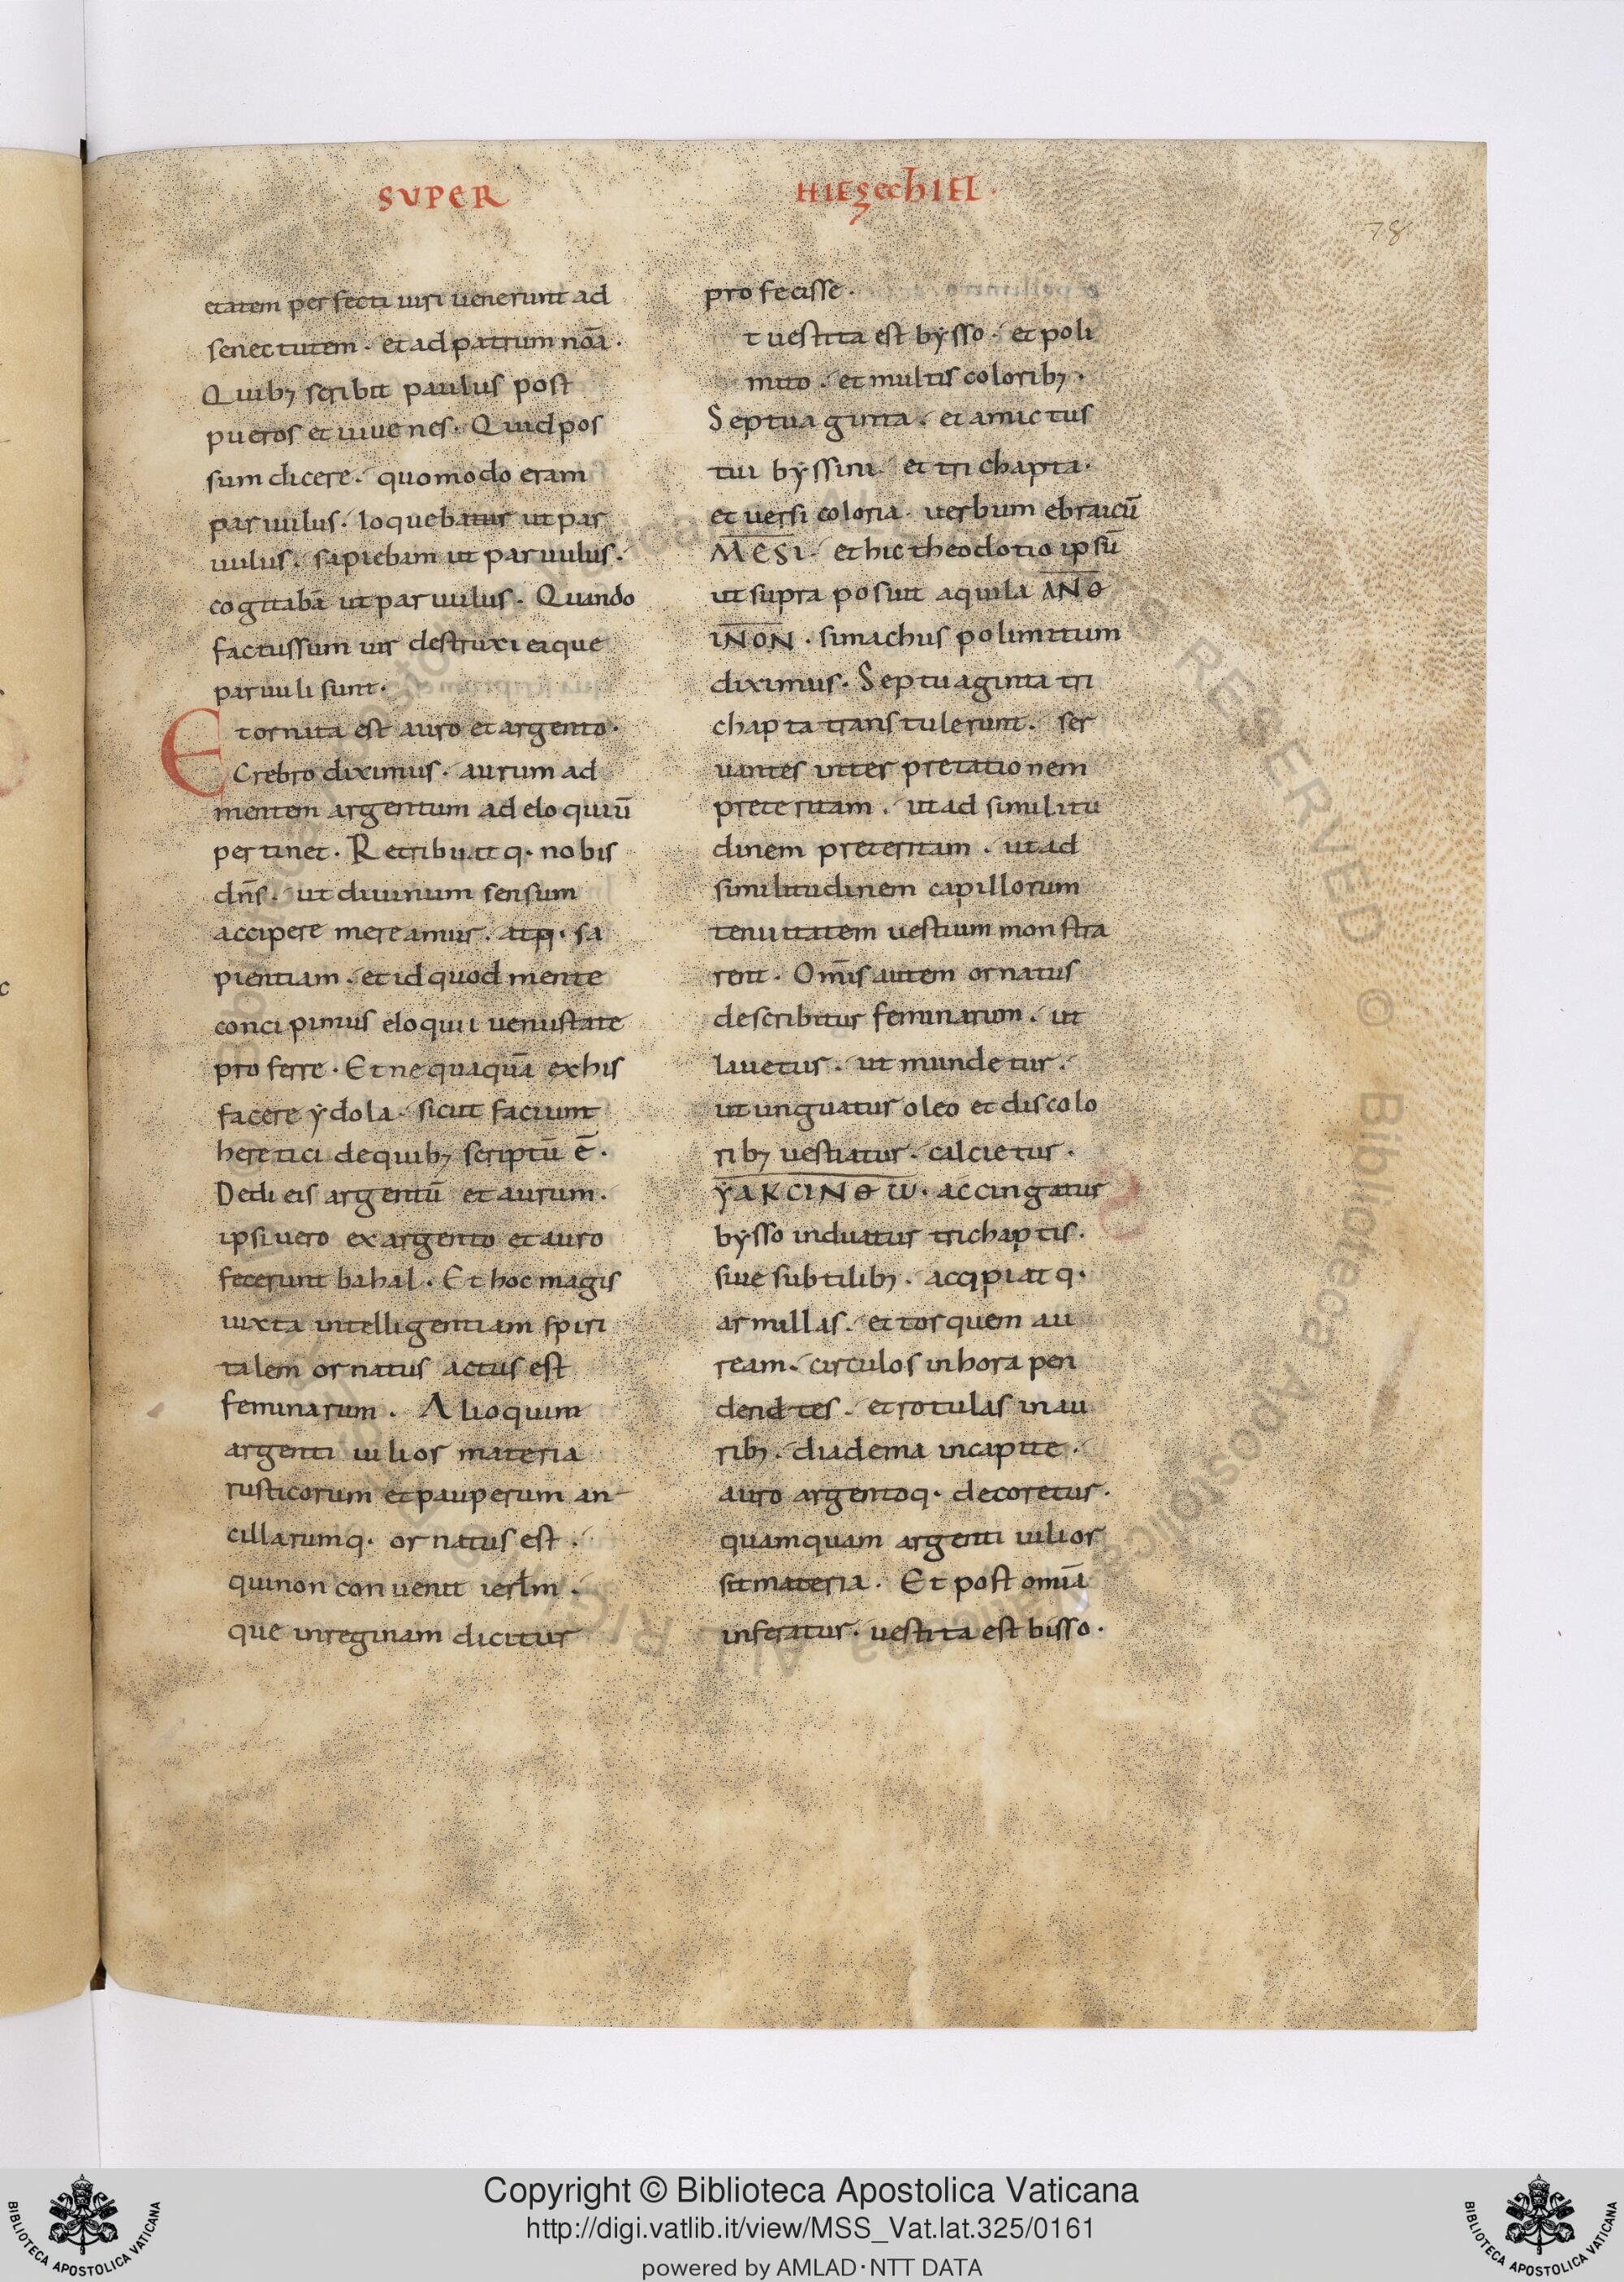 SUPER
HIEzechIEL.
78
etatem perfecti uiri uenerunt ad
senectutem. et ad patrum noā.
Quib; scribit paulus post
pueros et iuuenes. Quid pos
sum dicere. quomodo eram
paruulus. loquebatur ut par
uulus. sapiebam ut paruulus.
cogitabā ut paruulus. Quando
factussum uir destruxi eaque
paruuli sunt.
Et ornata est auro et argento.
Crebro diximus. aurum ad
mentem argentum ad eloquiū
pertinet. Retribuat q. nobis
dn̄s. ut diuinum sensum
accipere mereamur. atq. sa
pientiam. et id quod mente
concipimus eloquii uenustate
proferre. Et nequaquā ex his
facere ydola. sicut faciunt
heretici de quib; scriptū ē.
Dedi eis argentū et aurum.
ipsi uero ex argento et auro
fecerunt bahal. Et hoc magis
iuxta intelligentiam spiri
talem ornatus actus est
feminarum. Alioquim
argenti uilior materia
rusticorum et pauperum an
cillarumq. ornatus est.
qui non conuenit ierl̄m.
que in reginam dicitur
profecisse.
t uestita est bysso. et poli
mito. et multis colorib;.
Septuaginta. et amictus
tui byssini. et trichapta.
et uersicoloria. uerbum ebraicū
MESI. et hic theodotio ipsū
ut supra posuit aquila ANΘ
INON. simachus polimitum
diximus. Septuaginta tri
chapta transtulerunt. ser
uantes interpretationem
preteritam. ut ad similitu
dinem preteritam. ut ad
similitudinem capillorum
tenuitatem uestium monstra
rent. Om̄is autem ornatus
describitur feminarum. ut
lauetur. ut mundetur.
ut unguatur oleo et discolo
rib; uestiatur. calcietur.
YAKCINΘW. accingatur
bysso induatur trichaptis.
siue subtilib;. accipiat q.
armillas. et torquem au
ream. circulos in hora pen
dendtes. et rotulas in au
rib;. diadema in capite.
auro argentoq. decoretur.
quamquam argenti uilior
sit materia. Et post omīa
inferatur. uestita est bisso.
Copyright © Biblioteca Apostolica Vaticana
http://digi.vatlib.it/view/MSS_Vat.lat.325/0161
powered by AMLAD·NTT DATA
BIBLIOTECA APOSTOLICA VATICANA
BIBLIOTECA APOSTOLICA VATICANA